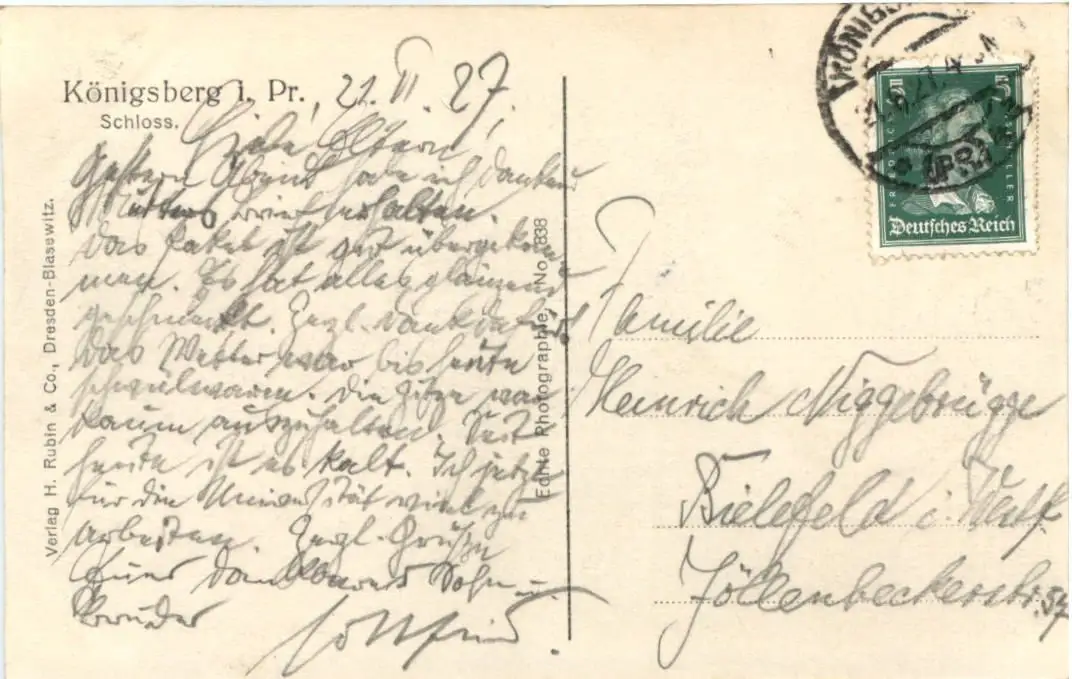 Königsberg i. Pr., 21. VI. 27.
Schloss.
Liebe Eltern!
Gestern Abend habe ich dankend
Mutters Brief erhalten.
Das Paket ist gut übergekom
men. Es hat alles glänzend
geschmeckt. Herzl. Dank dafür!
Das Wetter war bis heute
schwülwarm. Die Hitze war
kaum auszuhalten. Seit
heute ist es kalt. Ich jetzt
für die Universität viel zu
arbeiten. Herzl. Grüße
Euer dankbarer Sohn u.
Bruder
Gottfried
Verlag H. Rubin & Co., Dresden-Blasewitz.
Echte Photographie, No. 838
KÖNIGSB
(PR)
FRIEDRICH SCHILLER
Deutsches Reich
Familie
Heinrich Niggebrügge
Bielefeld i. Westf
Jöllenbeckerstr. 57